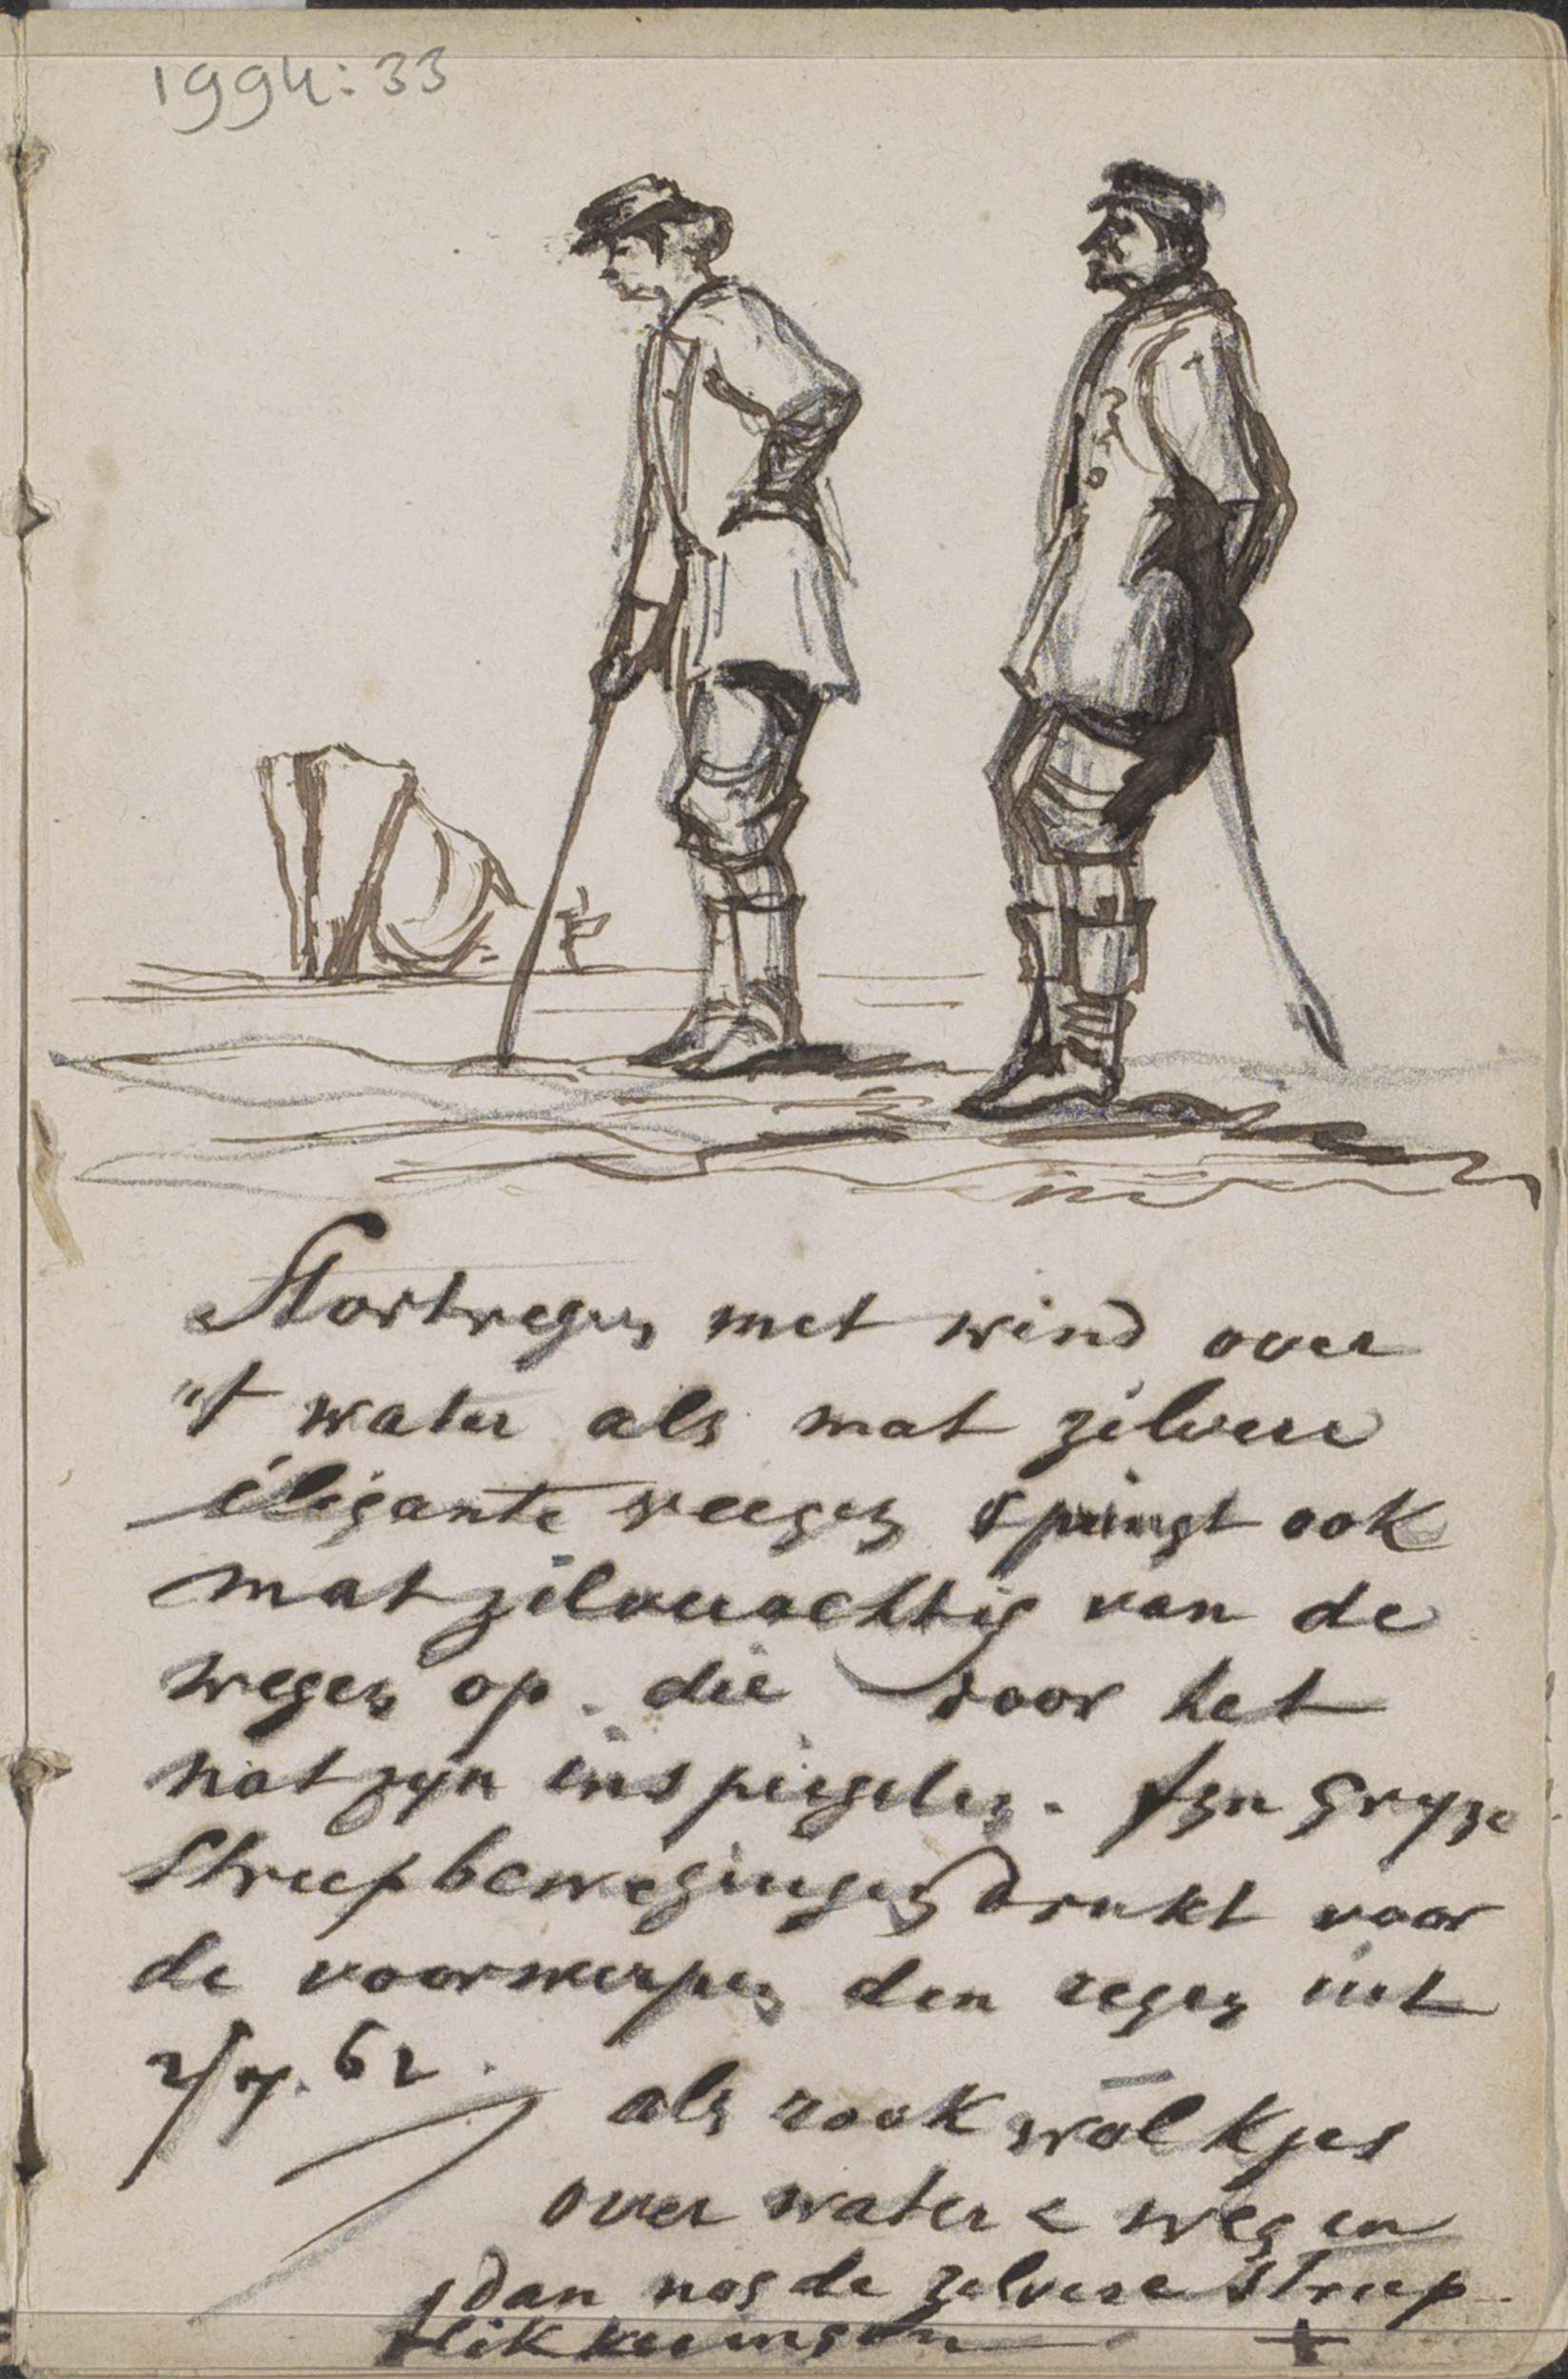 1994:33
Stortregen met wind over
't water als mat zilvere
élégante veegen springt ook
mat zilverachtig van de
wegen op. die door het
nat zyn inspiegelen. fyn gryze
streepbewegingen drukt voor
de voorwerpen den regen uit
als rookwolkjes
over water & wegen
dan nog de zilvere streep
flikkeringen